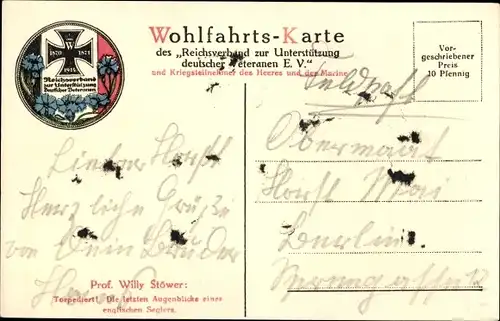 Wohlfahrts-Karte
des „Reichsverband zur Unterstützung
deutscher Veteranen E. V.“
und Kriegsteilnehmer des Heeres und der Marine
Vor-
geschriebener
Preis
10 Pfennig
W
1870 1871
1915
Reichsverband
zur Unterstützung
Deutscher Veteranen
Feldpost
Lieber Horst
Herzliche Grüße
von Dein Bruder
Obermaat
Horst Mai
Berlin
Prof. Willy Stöwer:
Torpediert! Die letzten Augenblicke eines
englischen Seglers.